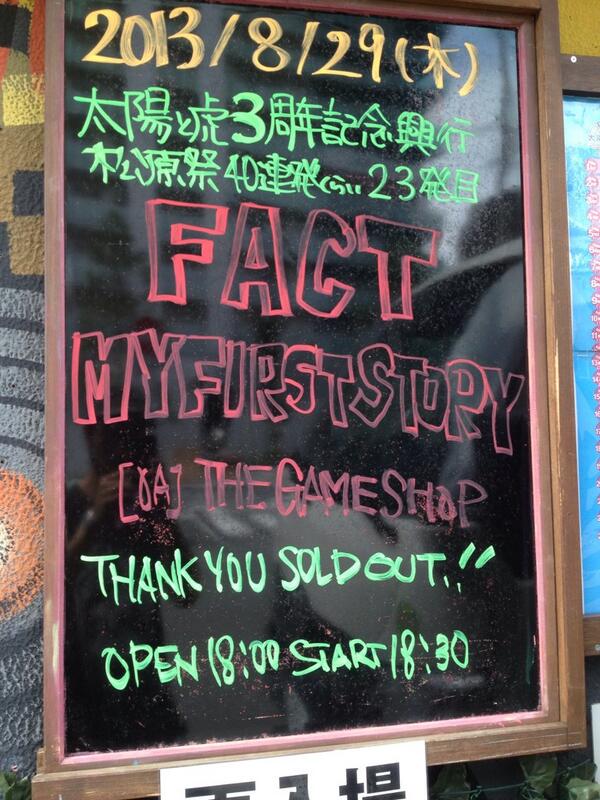 2013/8/29(木)
太陽と虎3周年記念興行
松原祭40連発くらい23発目
FACT
MY FIRST STORY
[OA] THE GAME SHOP
THANK YOU SOLD OUT..!!
OPEN 18:00 START 18:30
再入場